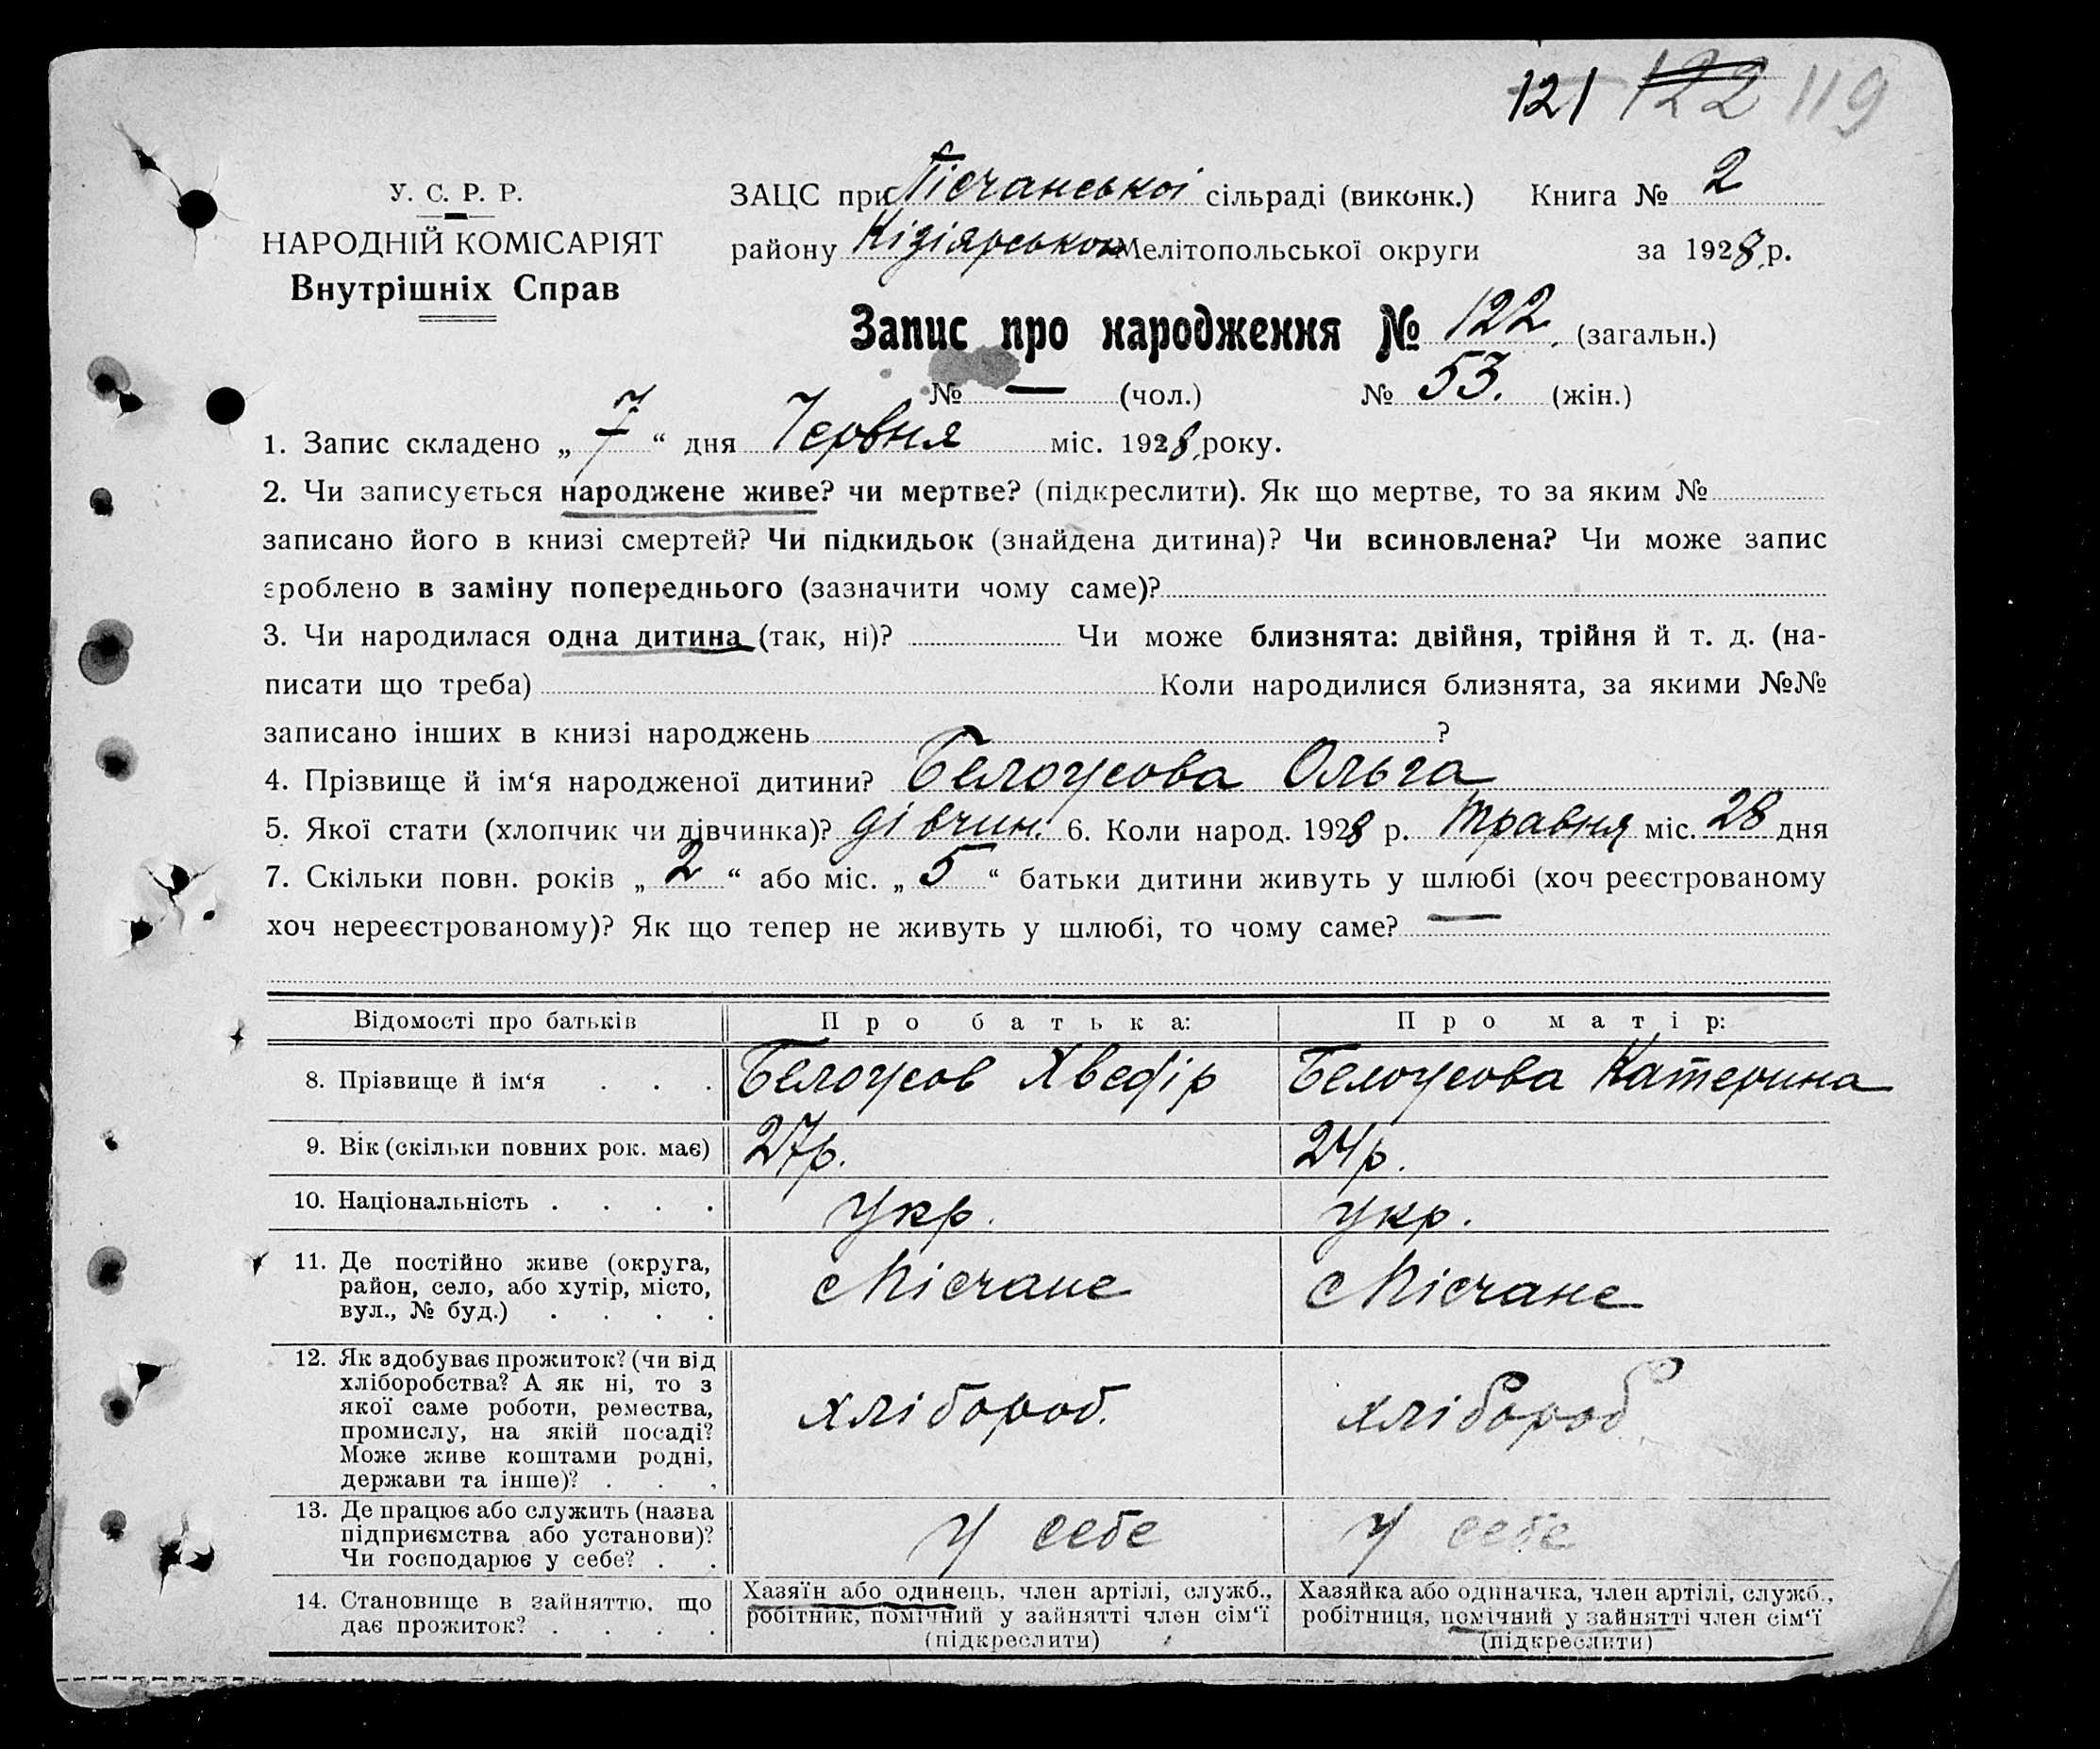 121 122 119
У. С. Р. Р.
НАРОДНІЙ КОМІСАРІЯТ
Внутрішніх Справ
ЗАЦС при Пісчанської сільраді (виконк.) Книга № 2
району Кізіярського Мелітопольської округи за 1928 р.
Запис про народження № 122. (загальн.)
№ — (чол.) № 53. (жін.)
1. Запис складено „ 7 “ дня Червня міс. 1928 року.
2. Чи записується народжене живе? чи мертве? (підкреслити). Як що мертве, то за яким №
записано його в книзі смертей? Чи підкидьок (знайдена дитина)? Чи всиновлена? Чи може запис
зроблено в заміну попереднього (зазначити чому саме)?
3. Чи народилася одна дитина (так, ні)? Чи може близнята: двійня, трійня й т. д. (на-
писати що треба) Коли народилися близнята, за якими №№
записано інших в книзі народжень ?
4. Прізвище й ім‘я народженої дитини? Белоусова Ольга
5. Якої стати (хлопчик чи дівчинка)? дівчин. 6. Коли народ. 1928 р. травня міс. 28 дня
7. Скільки повн. років „ 2 “ або міс. „ 5 “ батьки дитини живуть у шлюбі (хоч реєстрованому
хоч нереєстрованому)? Як що тепер не живуть у шлюбі, то чому саме? —
Відомості про батьків Про батька: Про матір:
8. Прізвище й ім‘я . . . Белоусов Хведір Белоусова Катерина
9. Вік (скільки повних рок. має) 27р. 24р.
10. Національність . . . . Укр. Укр.
11. Де постійно живе (округа,
район, село, або хутір, місто,
вул., № буд.) . . . .
с Пісчане с Пісчане
12. Як здобуває прожиток? (чи від
хліборобства? А як ні, то з
якої саме роботи, ремества,
промислу, на якій посаді?
Може живе коштами родні,
держави та інше)? . . .
хлібороб. хлібороб
13. Де працює або служить (назва
підприємства або установи)?
Чи господарює у себе? . .
у себе у себе
14. Становище в зайняттю, що
дає прожиток? . . . .
Хазяїн або одинець, член артілі, служб.,
робітник, помічний у зайнятті член сім‘ї
(підкреслити)
Хазяйка або одиначка, член артілі, служб.,
робітниця, помічний у зайнятті член сім‘ї
(підкреслити)